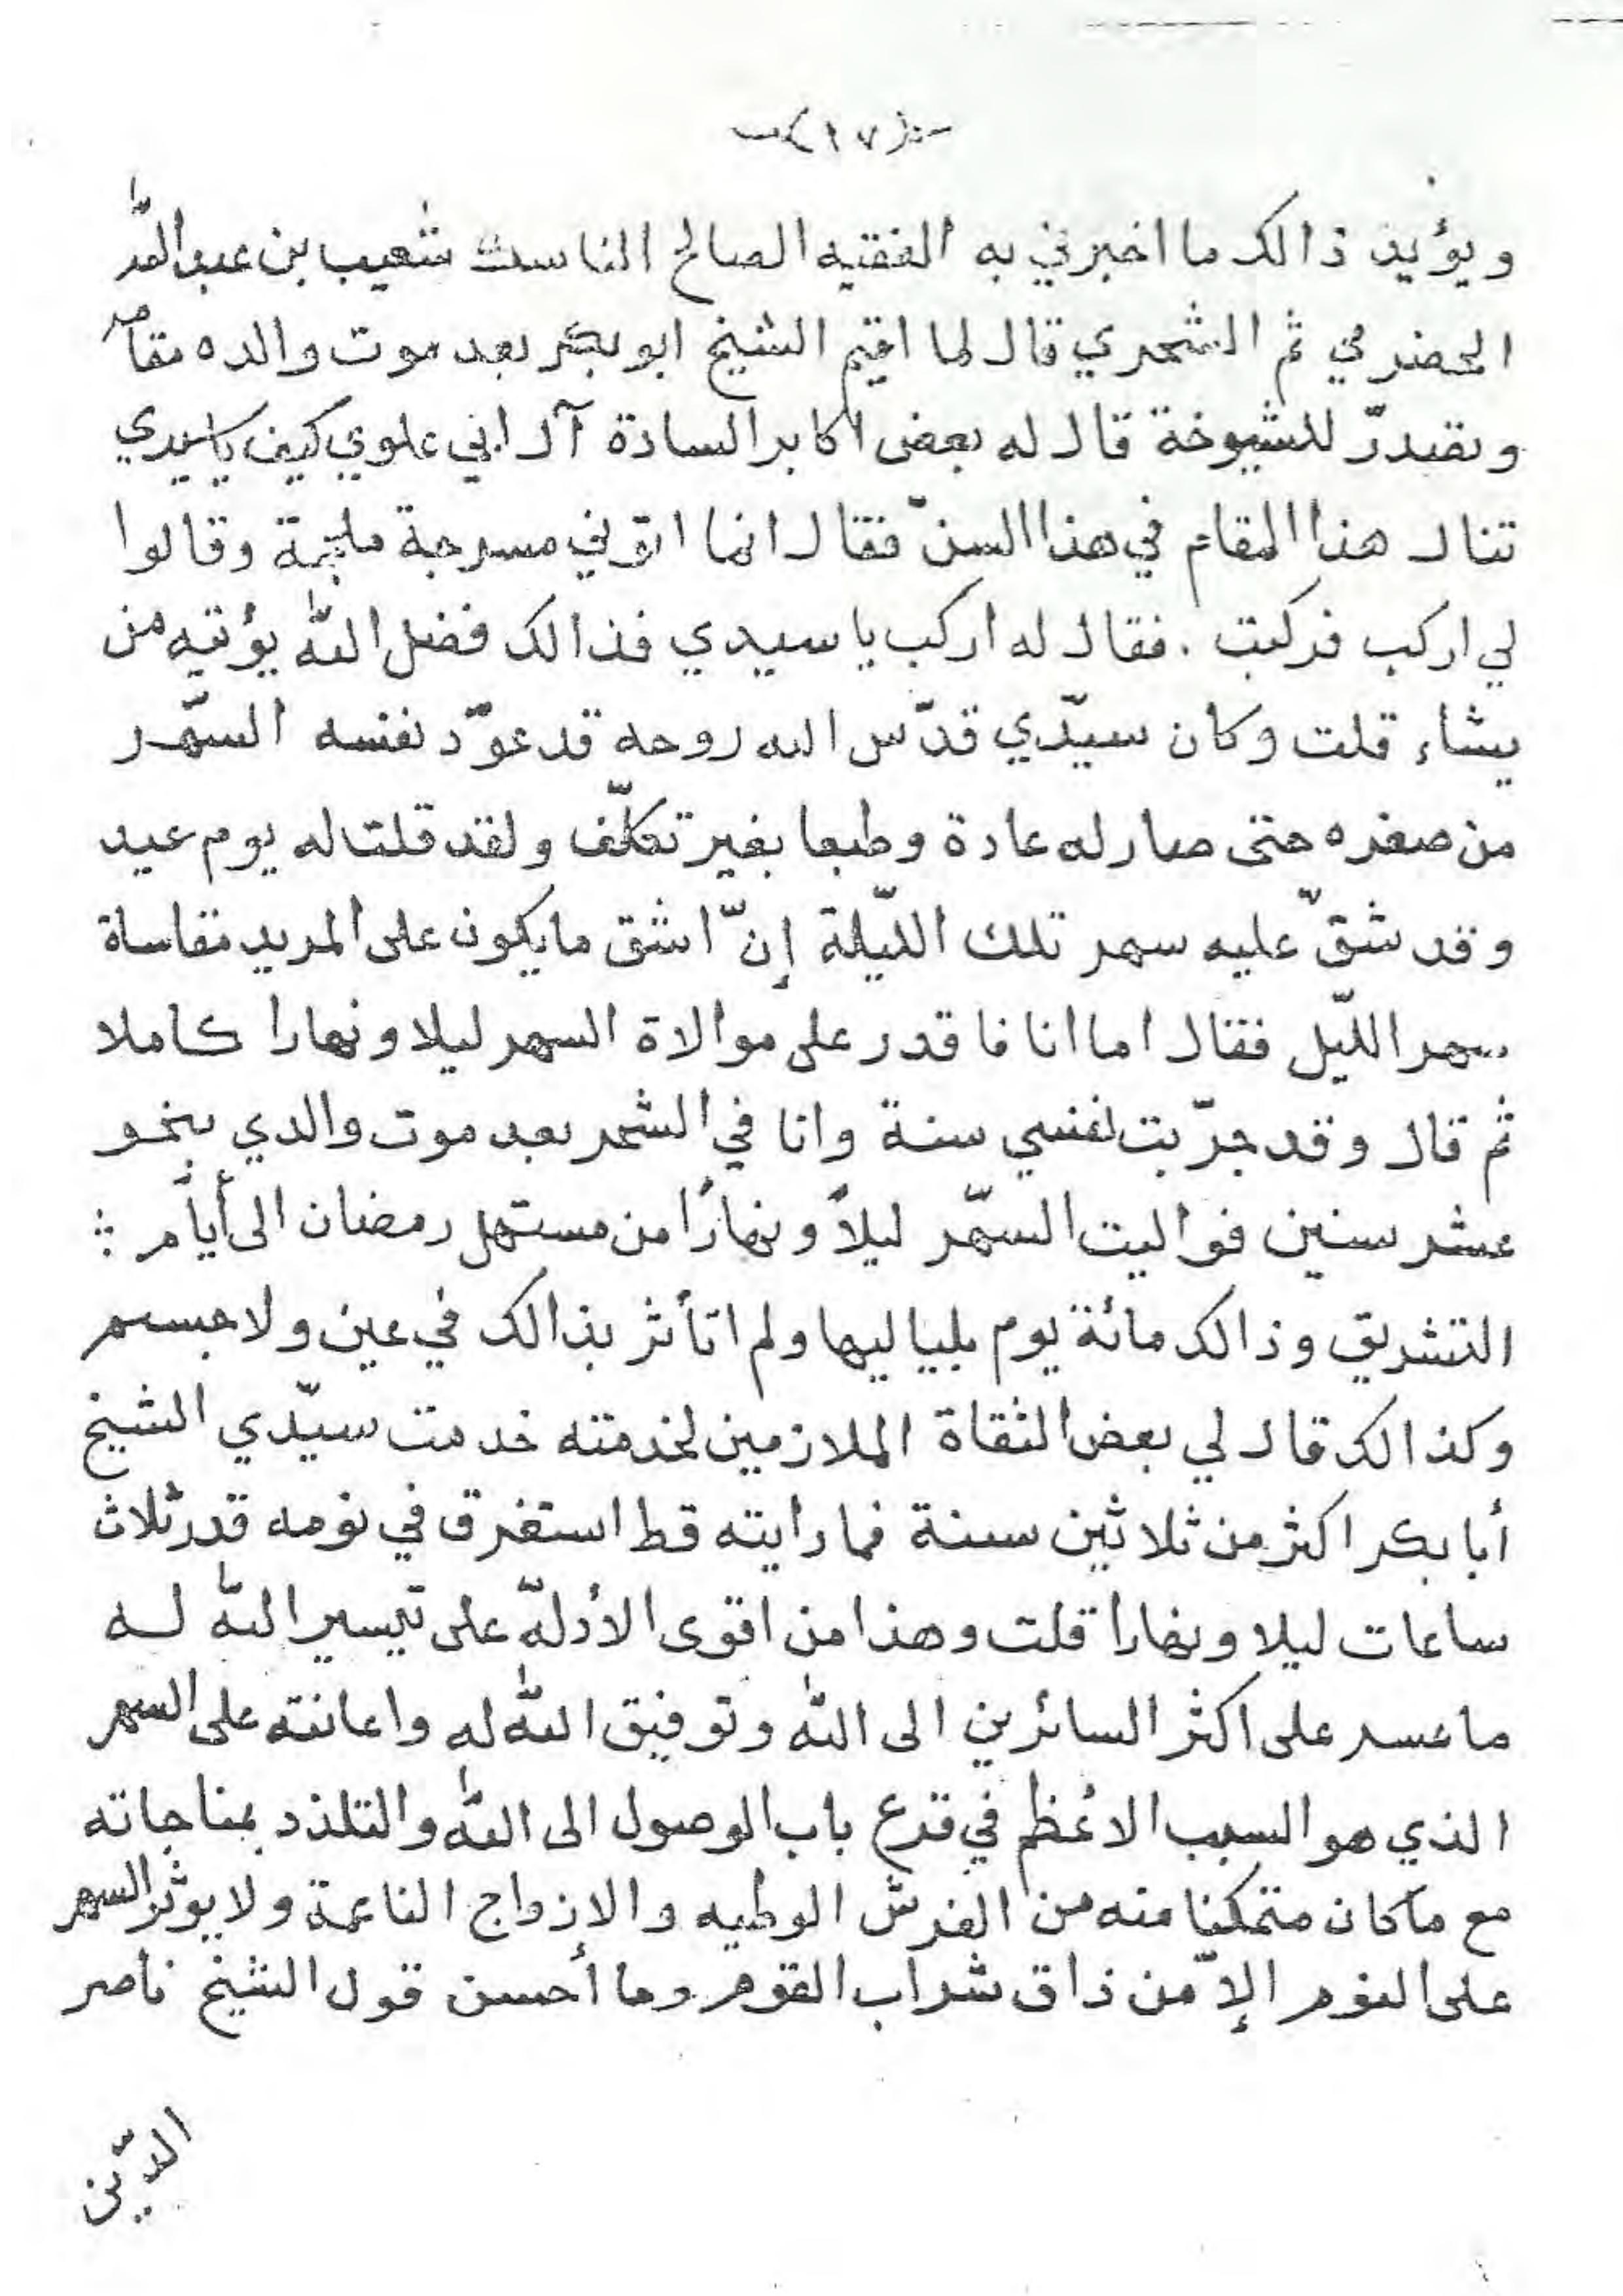 (١٧)
ويؤيد ذالك ما اخبرني به الفقيه الصالح الناسك شعيب بن عبدالله
الحضرمي ثم الشحري قال لما اقيم الشيخ ابو بكر بعد موت والده مقامه
وتصدّر للشيوخة قال له بعض اكابر السادة آل ابي علوي كيف يا سيدي
تنال هذا المقام في هذا السنّ فقال انما اتوني مسرجة ملجمة وقالوا
لي اركب فركبت . فقال له اركب يا سيدي فذالك فضل اللّٰه يؤتيه من
يشاء قلت وكان سيّدي قدّس الله روحه قد عوّد نفسه السّهر
من صغره حتى صار له عادة وطبعا بغير تكلّف ولقد قلت له يوم عيد
وقد شقّ عليه سهر تلك اللّيلة إنّ اشق ما يكون على المريد مقاساة
سهر اللّيل فقال اما انا فاقدر على موالاة السهر ليلا ونهارا كاملا
ثم قال وقد جرّبت نفسي سنة وانا في الشحر بعد موت والدي بنحو
عشر سنين فواليت السّهر ليلاً ونهارًا من مستهل رمضان الى أيام :
التشريق وذالك مائة يوم بلياليها ولم اتأثر بذالك في عين ولا جسم
وكذالك قال لي بعض الثقاة الملازمين لخدمته خدمت سيّدي الشيخ
أبا بكر اكثر من ثلاثين سنة فما رايته قط استغرق في نومه قدر ثلاث
ساعات ليلا ونهارا قلت وهذا من اقوى الأدلّة على تيسير اللّٰه له
ما عسر على اكثر السائرين الى اللّٰه وتوفيق اللّٰه له واعانته على السهر
الذي هو السبب الاعظم في قرع باب الوصول الى اللّٰه والتلذذ بمناجاته
مع ما كان متمكنا منه من الفرش الوطيه والازواج الناعمة ولا يوثر السهر
على النوم إلاّ من ذاق شراب القوم وما أحسن قول الشيخ ناصر
الدّين